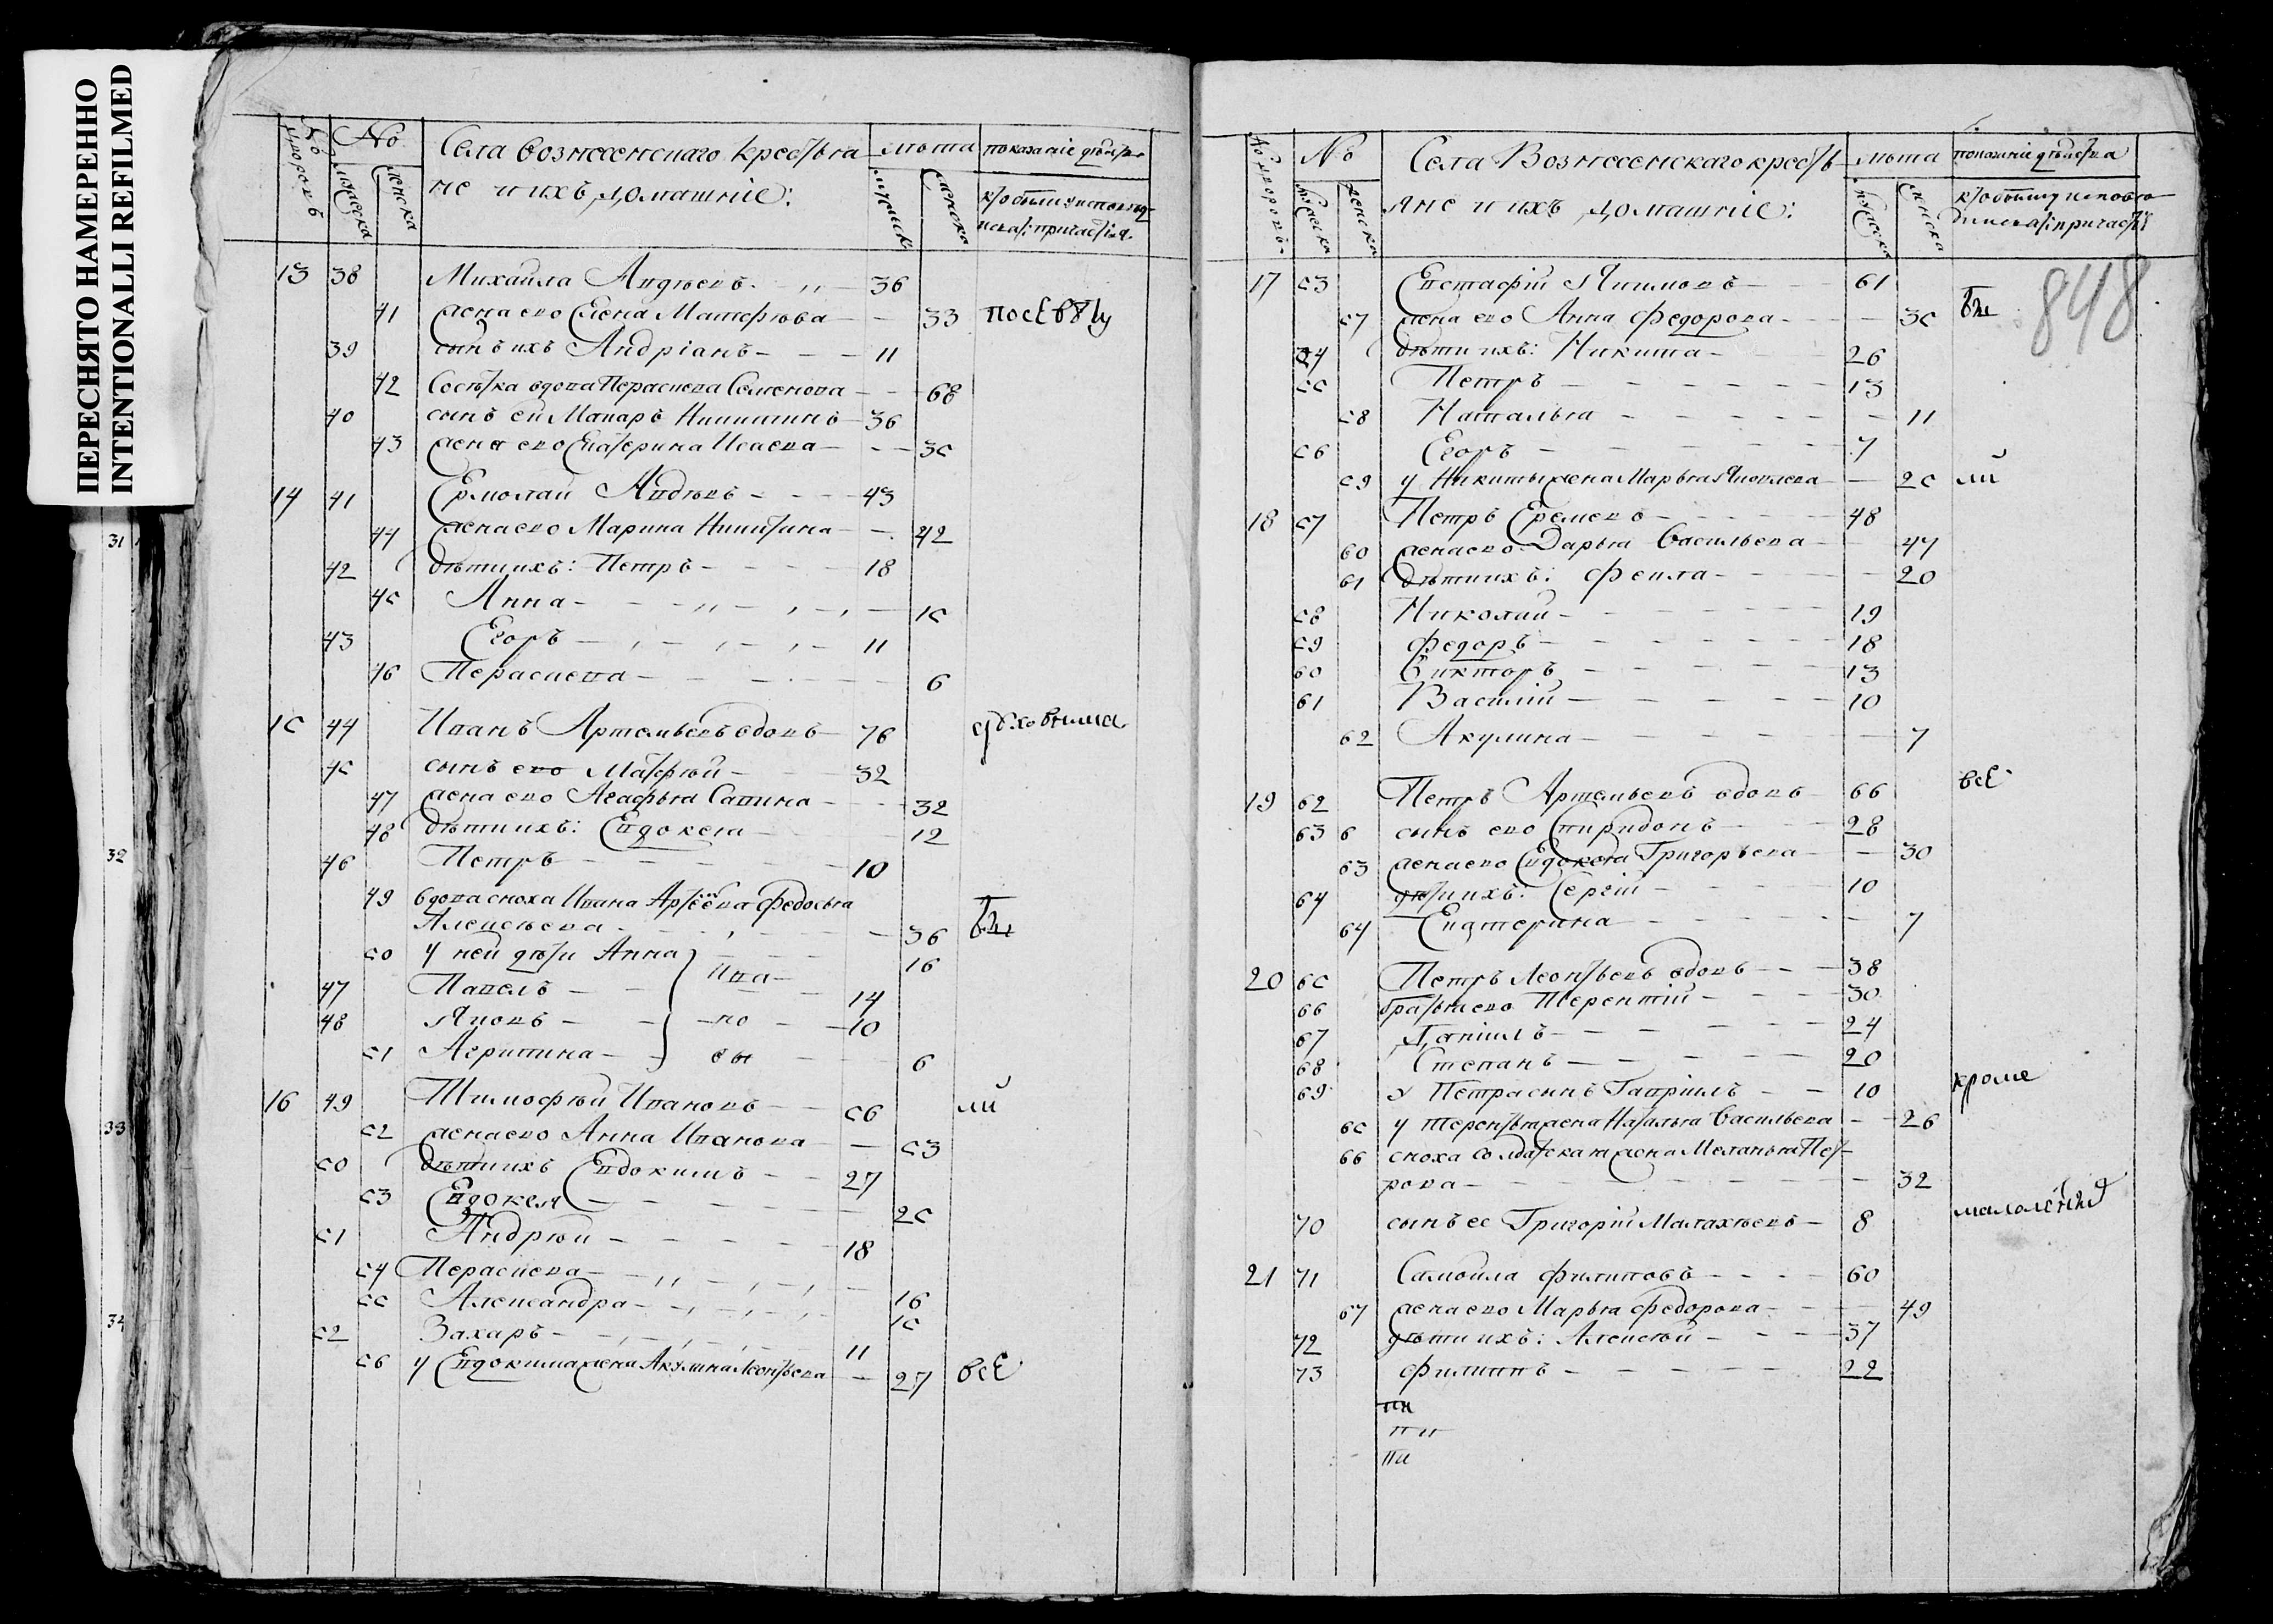 ПЕРЕСНЯТО НАМЕРЕННО
INTENTIONALLI REFILMED
31
32
33
34
№ дворовъ
№
мужеска
женска
Села Вознесенскаго крестья
не и ихъ домашніе:
лѣта
мужеск
женска
показаніе действа
кто были у исповед
и свят: причастія
13 38 Михайла Авдѣевъ 36
41 жена ево Елена Матфѣева 33
39 сынъ ихъ Андріанъ 11
42 Сосѣтка вдова Параскева Семенова 68
40 сынъ ей Макаръ Никитинъ 36
43 жена ево Екатерина Исаева 35
14 41 Ермолай Авдѣевъ 43
44 жена ево Марина Никитина 42
42 дѣти ихъ: Петръ 18
45 Анна 15
43 Егоръ 11
46 Пераскева 6
15 44 Иванъ Артемьевъ вдовъ 76
45 сынъ ево Матфѣй 32
47 жена ево Агафья Савина 32
48 дѣти ихъ: Евдокея 12
46 Петръ 10
49 вдова сноха Ивана Артеева Федосья
Алексѣева 36
50 у ней дѣти Анна 16
47 Павелъ Ива 14
48 Яковъ но 10
51 Агрипина вы 6
16 49 Тимофѣй Ивановъ 56 ли
52 жена ево Анна Иванова 53
50 дѣти ихъ Евдокимъ 27
53 Евдокея 25
51 Андрѣй 18
54 Пераскева 16
55 Александра 15
52 Захаръ 11
56 у Евдокима жена Акулина Леонтьева 27 всЕ
№ дворовъ
№
мужеска
женска
Села Вознесенскаго кресть
яне и ихъ домашніе:
лѣта
мужеска
женска
показаніе действа
кто были у испове
ди и свят: причастія
848
17 53 Евстафій Якимовъ 61
57 жена ево Анна Федорова 35
54 дѣти ихъ: Никита 26
55 Петръ 13
58 Наталья 11
56 Егоръ 7
59 у Никиты жена Марья Яковлева 25 ли
18 57 Петръ Еремеевъ 48
60 жена ево Дарья Васильева 47
61 дѣти ихъ: Фекла 20
58 Николай 19
59 Федоръ 18
60 Викторъ 13
61 Василій 10
62 Акулина 7
всЕ
19 62 Петръ Артемьевъ вдовъ 66
63 6 сынъ ево Спиридонъ 28
63 жена ево Евдокея Григорьева 30
64 дѣти ихъ: Сергій 10
64 Екатерина 7
20 65 Петръ Леонтьевъ вдовъ 38
66 братья ево Терентій 30
67 Даніилъ 24
68 Степанъ 20
69 У Петра сынъ Гавріилъ 10 кроме
65 у Терентья жена Наталья Васильева 26
66 сноха солдатская жена Меланья Пет-
рова 32
70 сынъ ее Григорій Малахѣевъ 8
21 71 Самойла Филиповъ 60
67 жена ево Марья Федорова 49
72 дѣти ихъ: Алексѣй 37
73 Филиппъ 22
пи
пи
пи